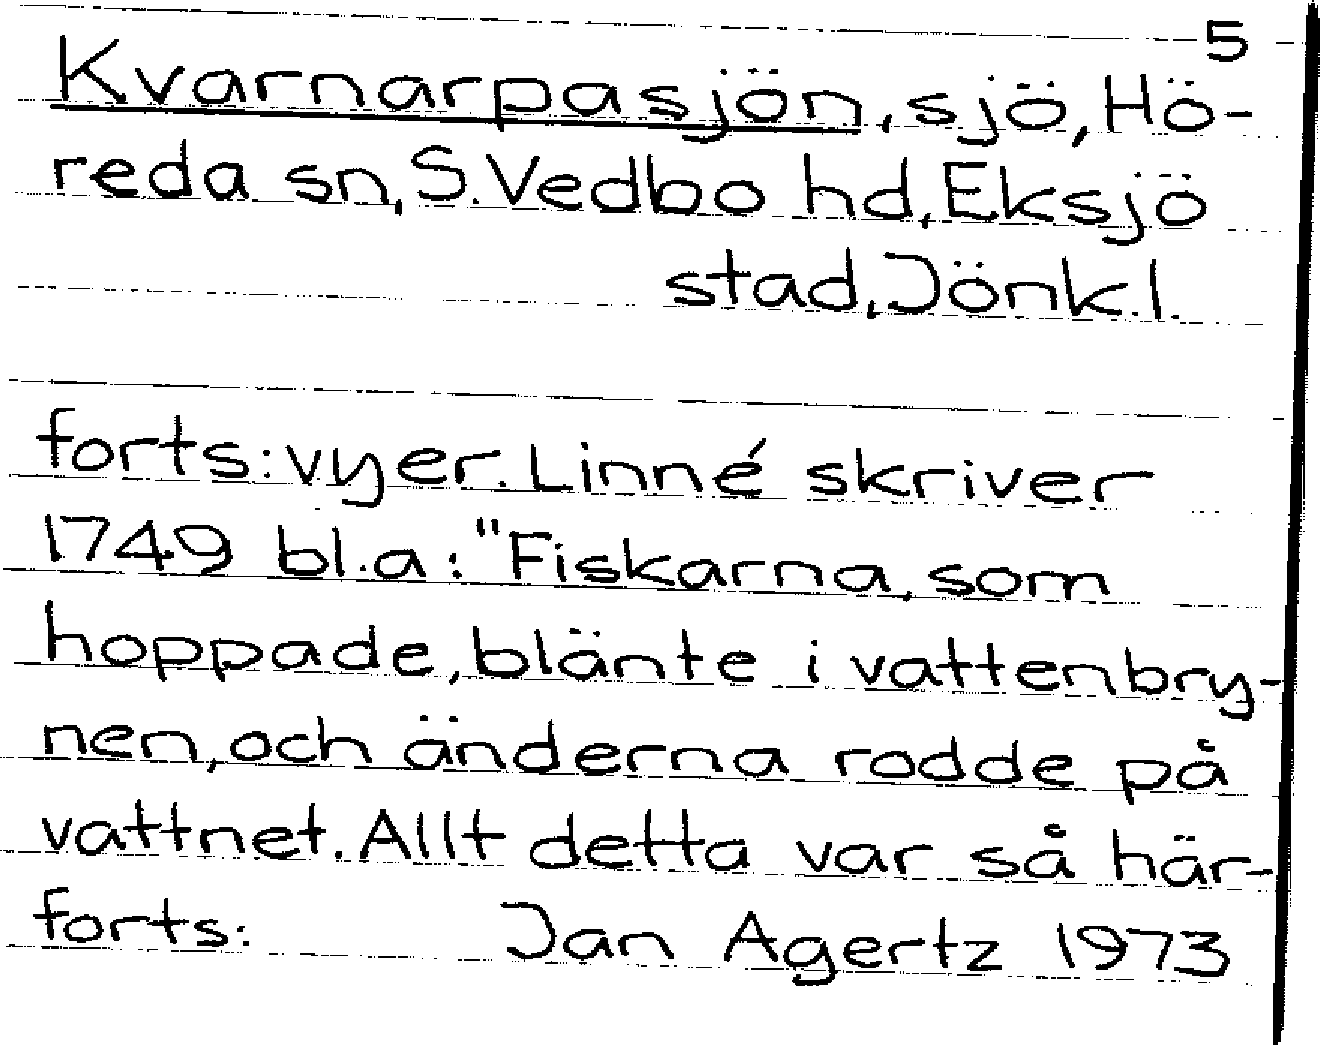 5
Kvarnarpasjön, sjö, Hö-
reda sn, S. Vedbo hd, Eksjö
stad, Jönk. l.
forts: vyer. Linné skriver
1749 bl.a: "Fiskarna, som
hoppade, blänte i vattenbry-
nen, och änderna rodde på
vattnet. Allt detta var så här-
forts: Jan Agertz 1973